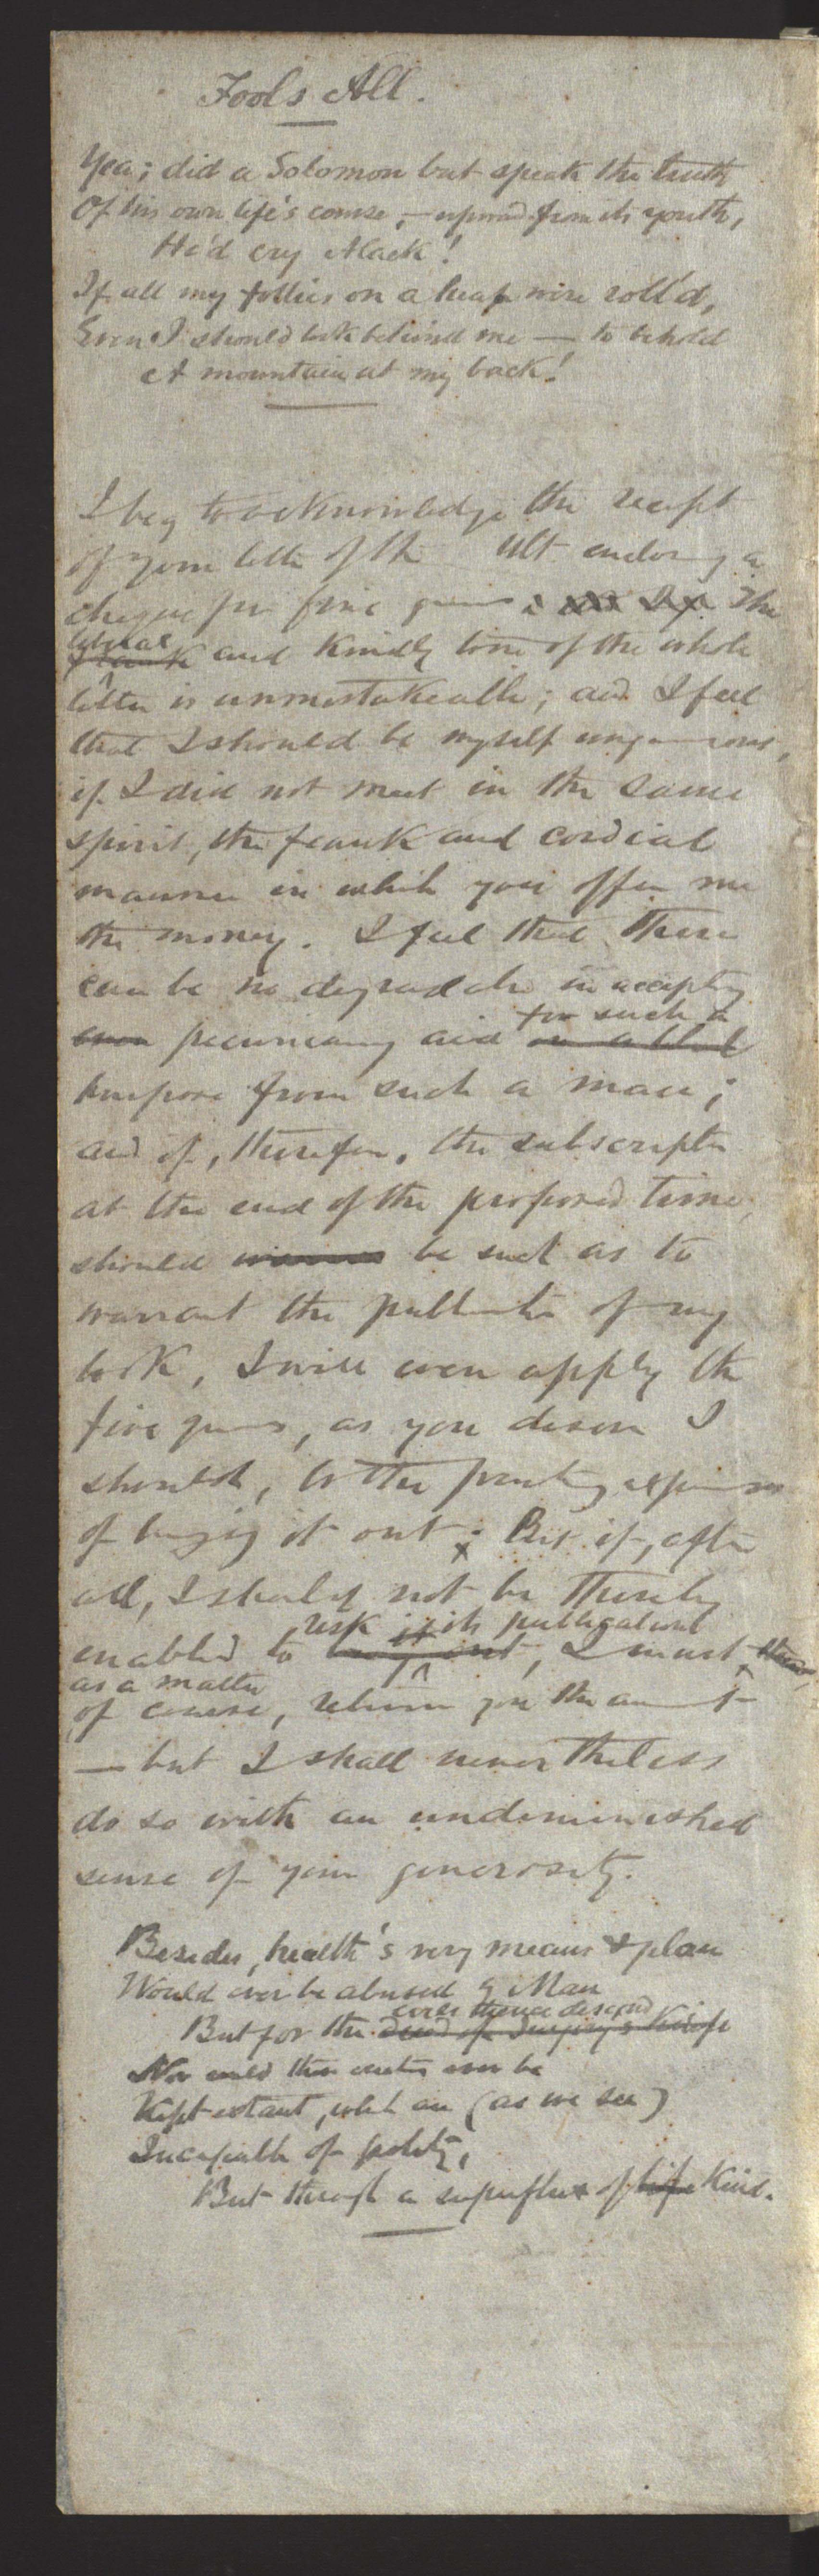 Fools All.
Yea; did a Solomon but speak the truth
Of his own life's course, — upward from its youth,
He'd cry Alack!
If all my follies on a heap were roll'd,
Even I should look behind me — to behold
A mountain at my back!
I beg to acknowledge the receipt
of your letter of the ult enclosing a
cheque for five guineas. The
liberal
frank and kindly tone of the whole
letter is unmistakeable; and I feel
that I should be myself ungenerous,
if I did not meet in the same
spirit, the frank and cordial
manner in which you offer me
the money. I feel that there
can be no degradation in accepting
for such a
even pecuniary aid
purpose from such a man;
and if, therefore, the subscription
at the end of the proposed time,
should be such as to
warrant the publication of my
book, I will even apply the
five guineas, as you desire I
should, to the printing expenses
of bringing it out. But if, after
all, I should not be thereby
risk it its publication
enabled to bring out, I must
as a matter
of course, return you the amount
— but I shall nevertheless
do so with an undiminished
sense of your generosity.
Besides, health's very means & plan
Would ever be abused by Man
evils thence descend
But for the dread of Surgery's Knife
Nor could those ever be
Kept extant, which are (as we see)
Incapable of polity,
But through a superflux of life Kind.